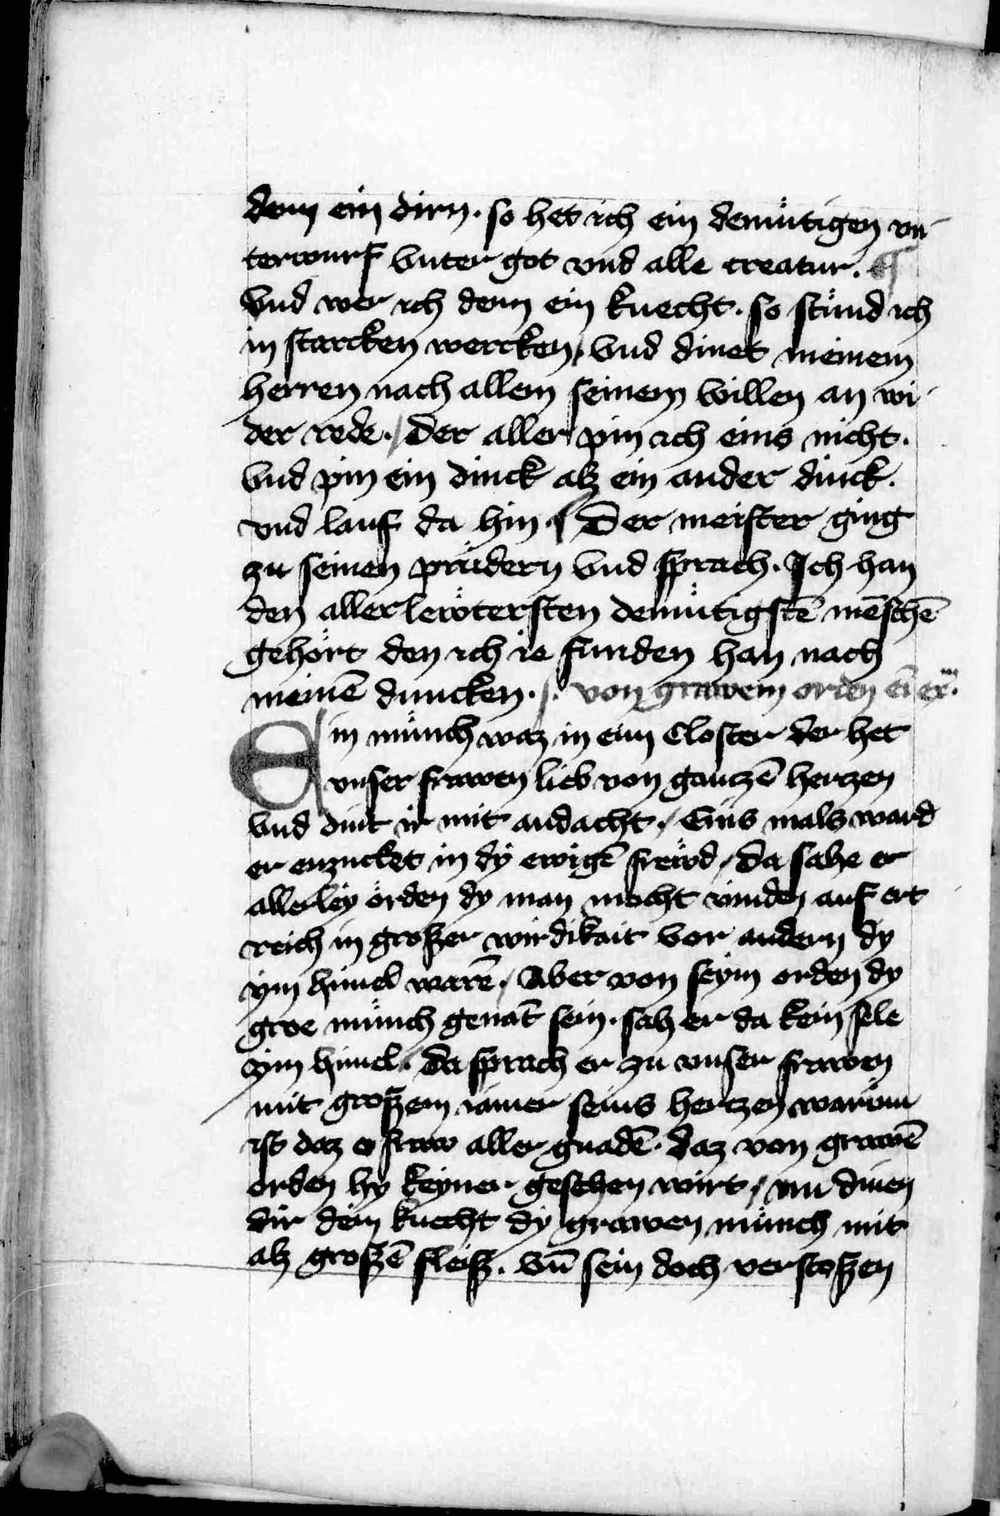 dem ein dirn. so het ich ein demütigen vn-
terwurf vnter got vnd alle creatur. ¶
Vnd wer ich denn ein knecht. so stünd ich
in starcken wercken. Vnd dinet meinem
herren nach allem seinem willen an wi-
der rede. / Der aller pin ich eins nicht.
Vnd pin ein dinck alz ein ander dinck.
vnd lauf da hin. ¶ Der meister ging
zu seinen prüdern vnd sprach. Ich han
den aller lewtersten demütigstē mēschē
gehört den ich ie funden han nach
meinē duncken. /. von grawem orden ei ex̄.
Ein münch waz in eim Closter der het
vnser frawen lieb von gantzē hertzen
Vnd dint ir mit andacht. / Eins mals ward
er enzucket in dy ewigē frewd / da sahe er
allerley örden dy man mocht vinden auf ert
reich in großer wirdikait vor andern dy
ym himel warē. / Aber von seym orden dy
groe münch genāt sein. sah er da kein sele
ym himel. Da sprach er zu vnser frawen
mit großem iamer seins hertzen warüm
ist daz o fraw aller gnadē. daz von grawē
orden hy keyner gesehen wirt / nu dinen
dir dein knecht dy grawen münch mit
alz großē fleiß. Vn̄ sein doch verstoßen